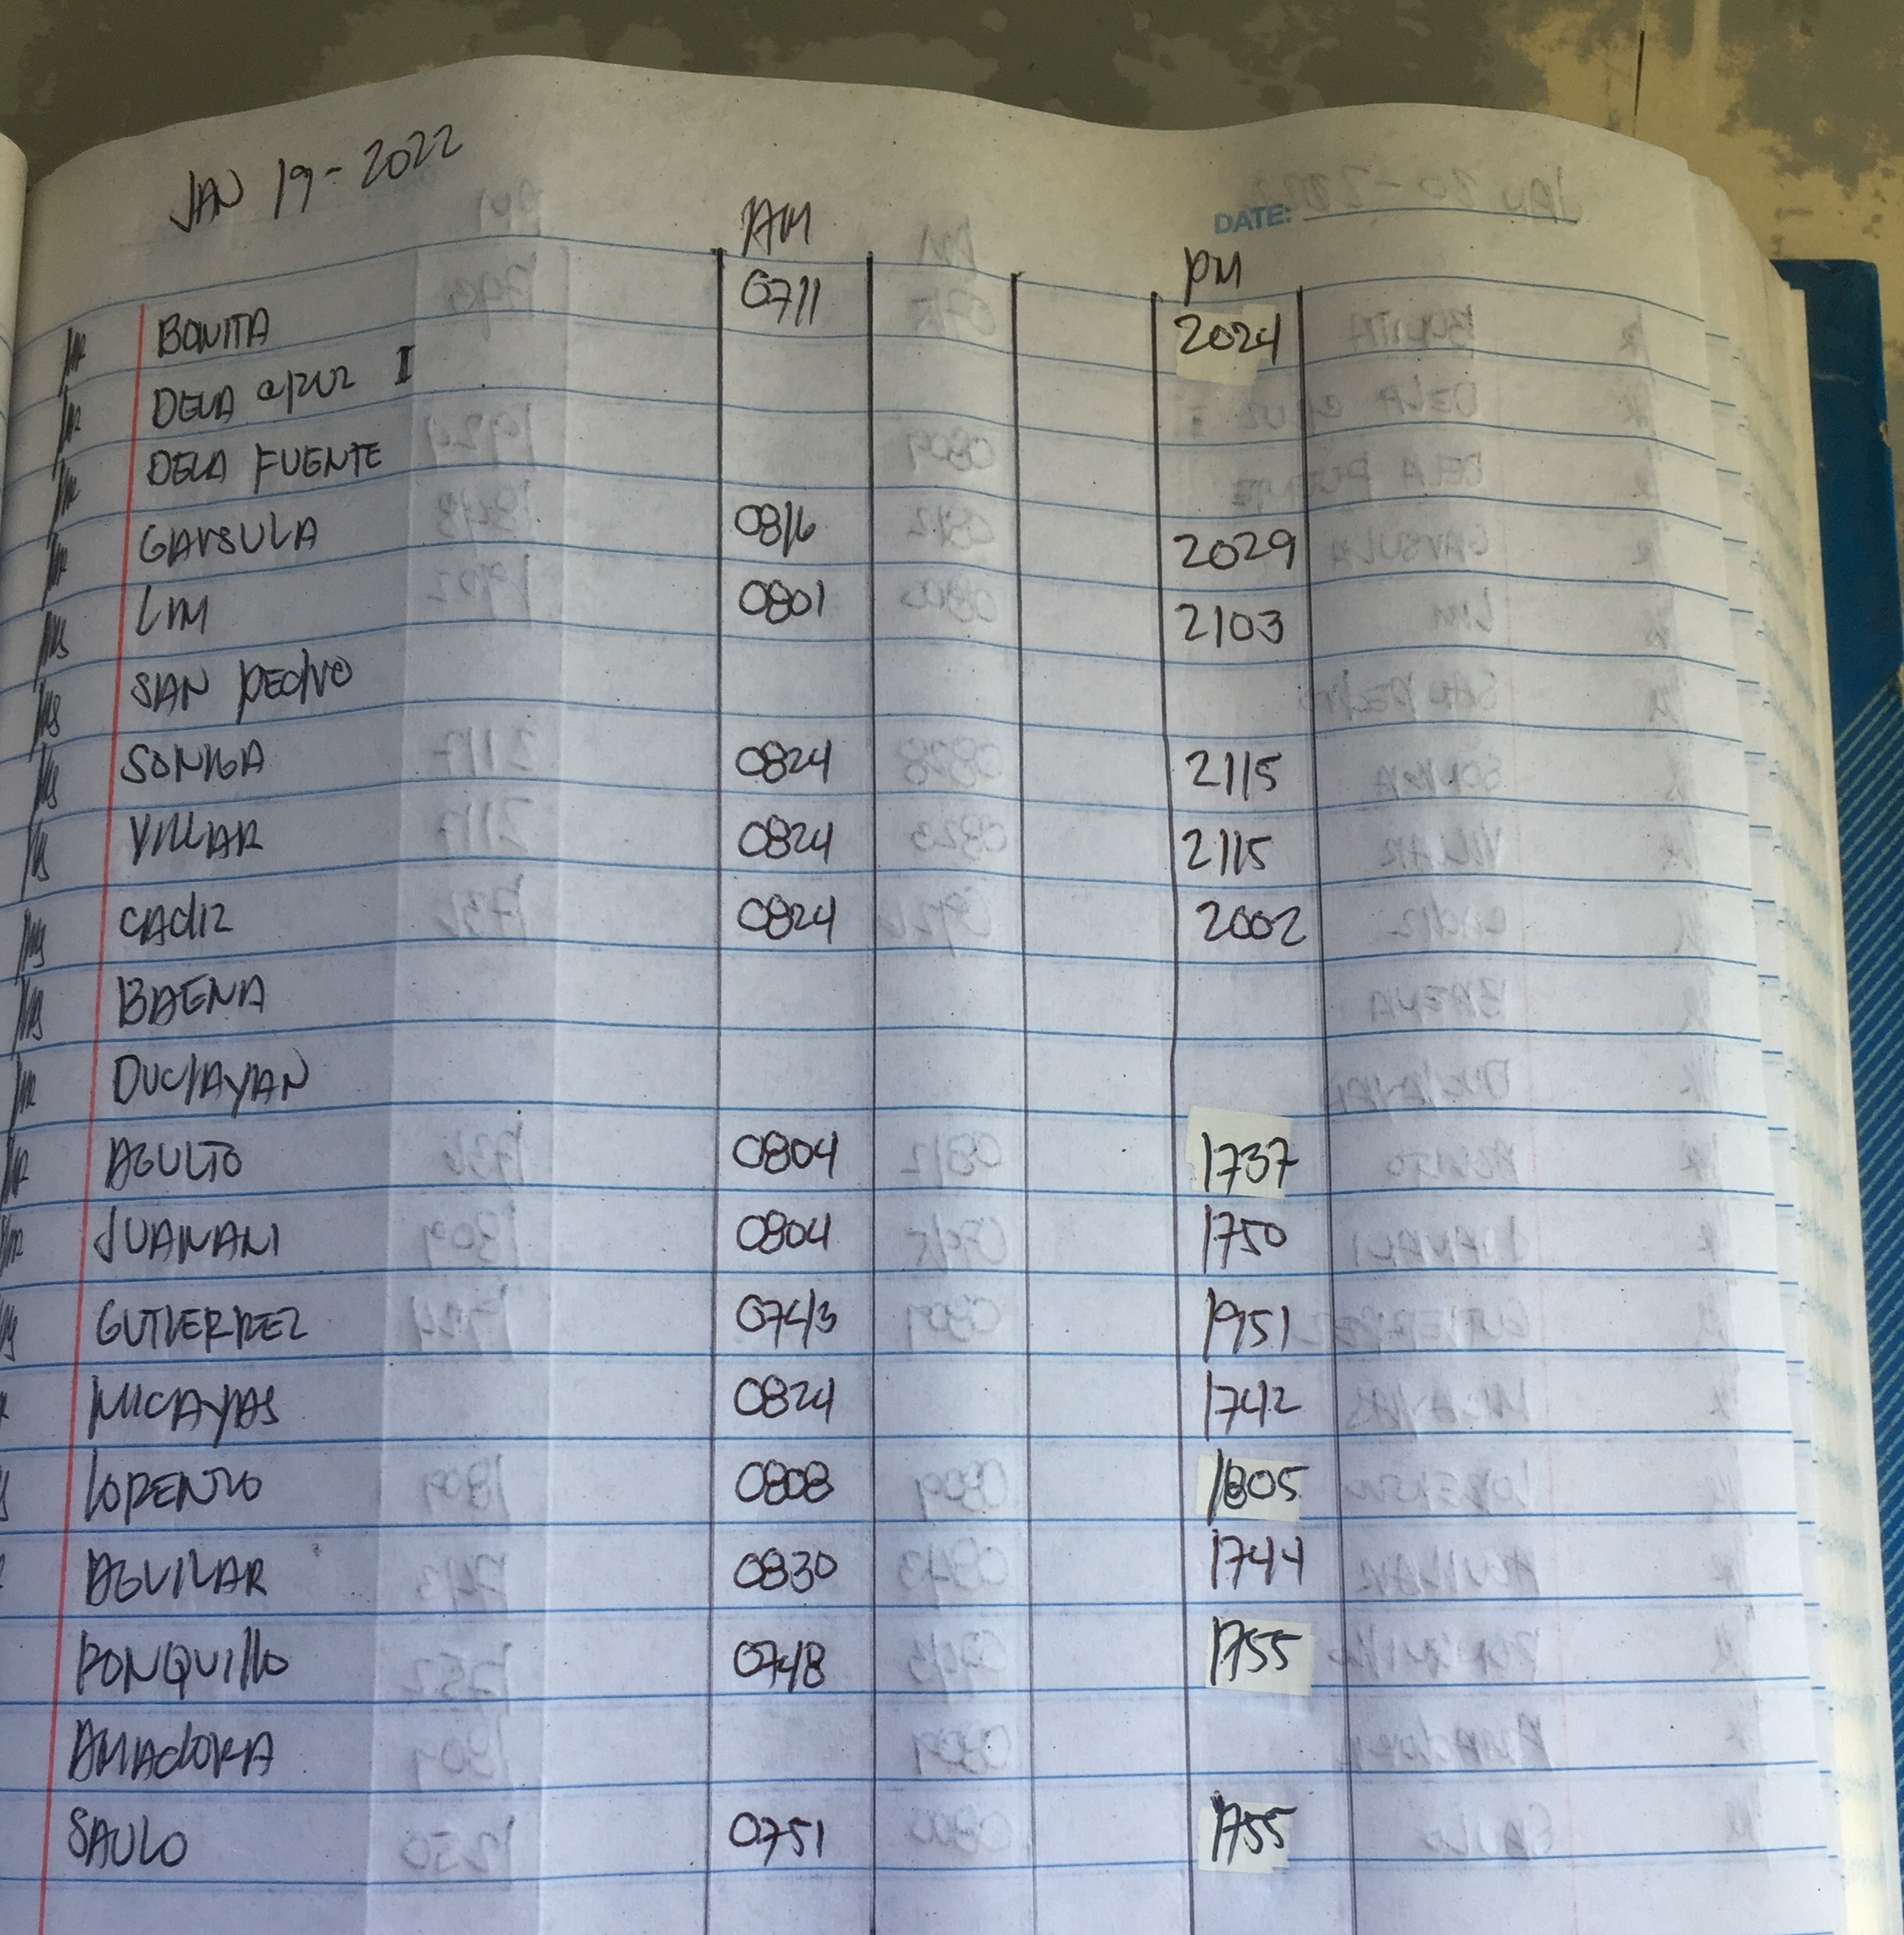 JAN 19-2022
DATE:
AM PM
MR BONITA 0711 2024
MR DELA CRUZ I
MR DELA FUENTE
MR GAVSULA 0816 2029
MS LIM 0801 2103
MS SAN PEDRO
MS SONGA 0824 2115
MS VILLAR 0824 2115
MS CADIZ 0824 2002
MS BAENA
MR DUCLAYAN
MR AGULTO 0804 1737
MR JUANANI 0804 1750
GUTIERREZ 0743 1951
MICAYAS 0824 1742
LORENZO 0808 1805
AGUILAR 0830 1744
RONQUILLO 0748 1755
AMADORA
SAULO 0751 1755